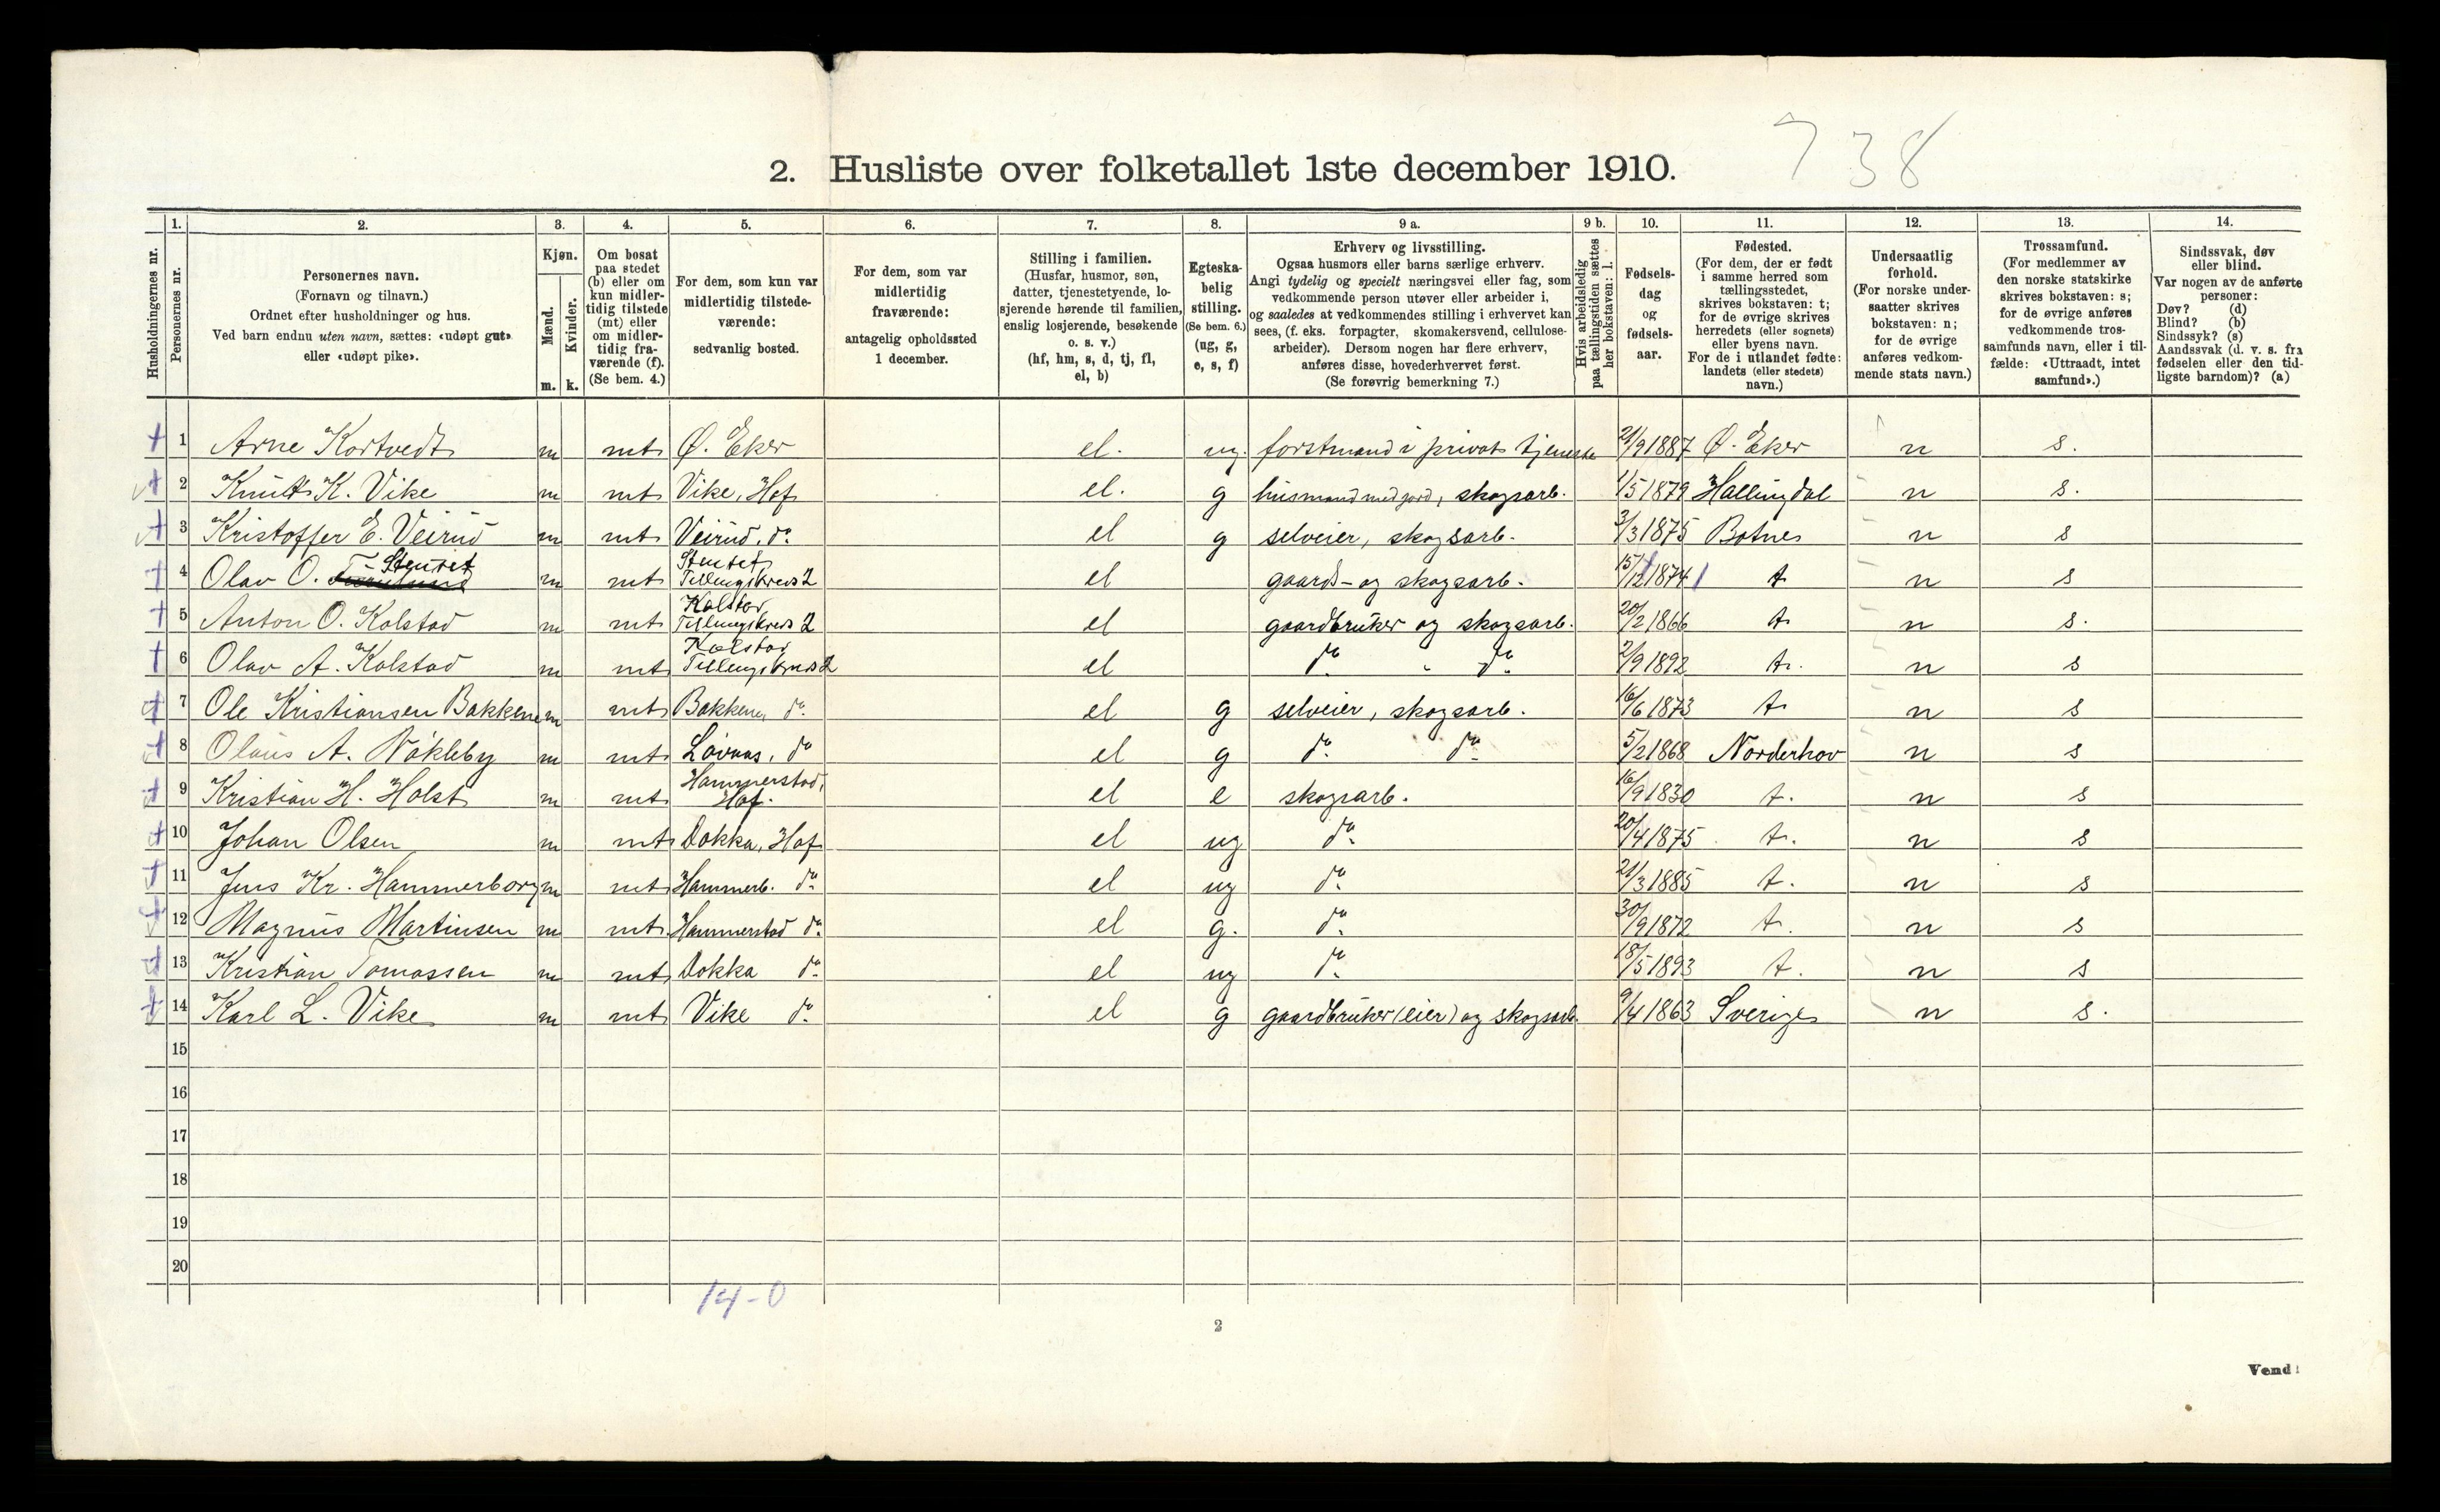 738
2. Husliste over folketallet 1ste december 1910.
Husholdningernes nr.
1. Personernes nr.
2. Personernes navn. (Fornavn og tilnavn.) Ordnet efter husholdninger og hus. Ved barn endnu uten navn, sættes: «udøpt gut» eller «udøpt pike».
3. Kjøn. Mænd. m. Kvinder. k.
4. Om bosat paa stedet (b) eller om kun midlertidig tilstede (mt) eller om midlertidig fraværende (f). (Se bem. 4.)
5. For dem, som kun var midlertidig tilstedeværende: sedvanlig bosted.
6. For dem, som var midlertidig fraværende: antagelig opholdssted 1 december.
7. Stilling i familien. (Husfar, husmor, søn, datter, tjenestetyende, losjerende hørende til familien, enslig losjerende, besøkende o. s. v.) (hf, hm, s, d, tj, fl, el, b)
8. Egteskabelig stilling. (Se bem. 6.) (ug, g, e, s, f)
9 a. Erhverv og livsstilling. Ogsaa husmors eller barns særlige erhverv. Angi tydelig og specielt næringsvei eller fag, som vedkommende person utøver eller arbeider i, og saaledes at vedkommendes stilling i erhvervet kan sees, (f. eks. forpagter, skomakersvend, cellulosearbeider). Dersom nogen har flere erhverv, anføres disse, hovederhvervet først. (Se forøvrig bemerkning 7.)
9 b. Hvis arbeidsledig paa tællingstiden sættes her bokstaven: l.
10. Fødselsdag og fødselsaar.
11. Fødested. (For dem, der er født i samme herred som tællingsstedet, skrives bokstaven: t; for de øvrige skrives herredets (eller sognets) eller byens navn. For de i utlandet fødte: landets (eller stedets) navn.)
12. Undersaatlig forhold. (For norske undersaatter skrives bokstaven: n; for de øvrige anføres vedkommende stats navn.)
13. Trossamfund. (For medlemmer av den norske statskirke skrives bokstaven: s; for de øvrige anføres vedkommende trossamfunds navn, eller i tilfælde: «Uttraadt, intet samfund».)
14. Sindssvak, døv eller blind. Var nogen av de anførte personer: Døv? (d) Blind? (b) Sindssyk? (s) Aandssvak (d. v. s. fra fødselen eller den tidligste barndom)? (a)
1 Arne Kortvedt m mt Ø. Eker el. ug. forstmand i privat tjeneste 21/9 1887 Ø. Eker n s.
2 Knut K. Vike m mt Vike, Hof el. g husmand med jord, skogsarb. 1/5 1879 Hallingdal n s.
3 Kristoffer E. Veirud m mt Veirud, do. el g selveier, skogsarb. 3/3 1875 Botne n s
4 Olav O. Stenset m mt Stenset Tellingskreds 2 el gaards- og skogsarb. 15/12 1874 t n s
5 Anton O. Kolstad m mt Kolstad Tellingskreds 2 el gaardbruker og skogsarb. 20/2 1866 t n s.
6 Olav A. Kolstad m mt Kolstad Tellingskreds 2 el do. " do. 2/9 1892 t. n s
7 Ole Kristiansen Bakkene m mt Bakkene, do. el g selveier, skogsarb. 16/6 1873 t n s
8 Olaus A. Nökleby m mt Lövaas, do el g do. do. 5/2 1868 Norderhov n s
9 Kristian H. Holst m mt Hammerstad, Hof. el e skogsarb. 16/9 1830 t. n s
10 Johan Olsen m mt Dokka, Hof el ug do. 20/4 1875 t. n s
11 Jens Kr. Hammerborg m mt Hammerb. do. el ug do. 21/3 1885 t. n s
12 Magnus Martinsen m mt. Hammerstad do. el g. do. 30/9 1872 t. n s
13 Kristian Tomassen m mt Dokka do. el ug do. 18/5 1893 t. n s
14 Karl L. Vike m mt Vike do. el g gaardbruker (eier) og skogsarb. 9/4 1863 Sverige n s.
15
16
17
18
19
20
14-0
2
Vend!